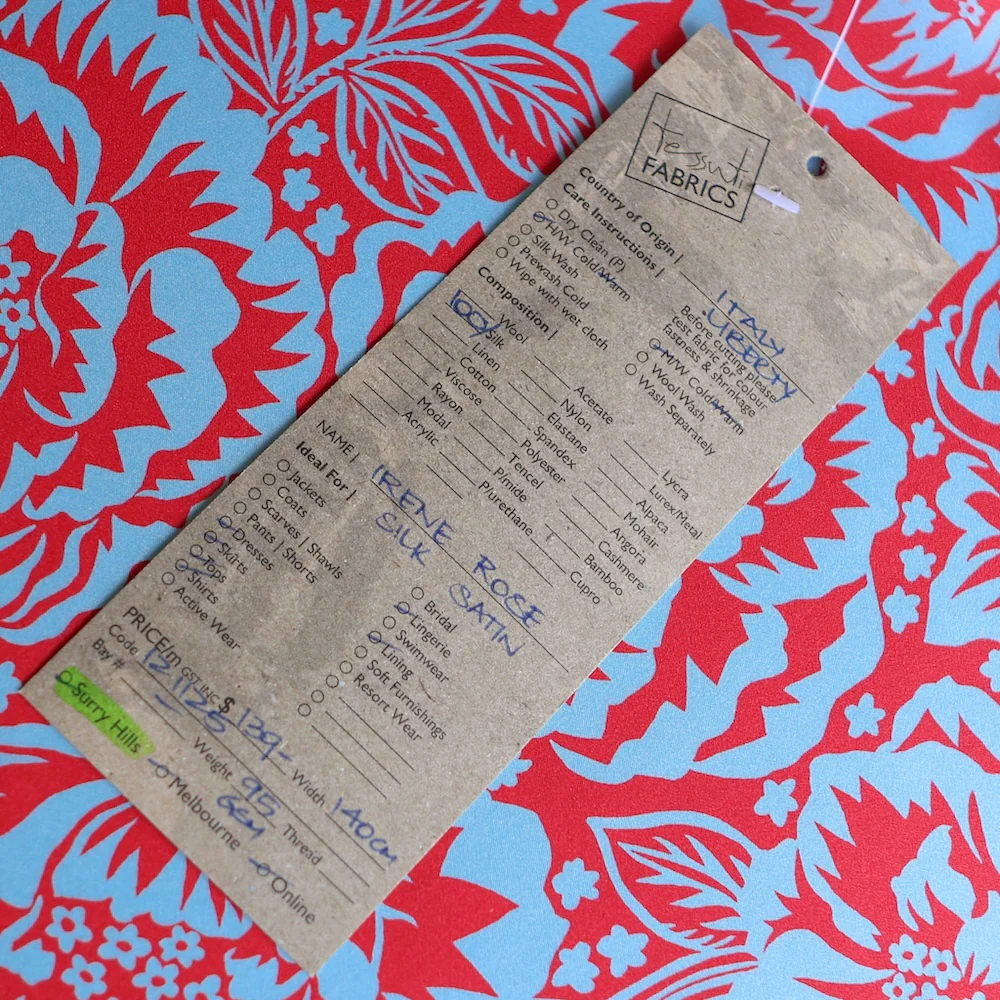 tessuti
FABRICS
Country of Origin | ITALY
LIBERTY
Care Instructions | Before cutting please
test fabric for colour
fastness & shrinkage
Dry Clean (P)
H/W Cold/Warm M/W Cold/Warm
Silk Wash Wool Wash
Prewash Cold Wash Separately
Wipe with wet cloth
Composition |
Wool Acetate Lycra
100% Silk Nylon Lurex/Metal
Linen Elastane Alpaca
Cotton Spandex Mohair
Viscose Polyester Angora
Rayon Tencel Cashmere
Modal P/mide Bamboo
Acrylic P/urethane Cupro
NAME | IRENE ROSE
SILK SATIN
Ideal For |
Jackets Bridal
Coats Lingerie
Scarves | Shawls Swimwear
Pants | Shorts Lining
Dresses Soft Furnishings
Skirts Resort Wear
Tops
Shirts
Active Wear
PRICE/m GST INC $ 139- Width 140cm
Code 121125 Weight 95 Thread
Bay # GSM
Surry Hills Melbourne Online